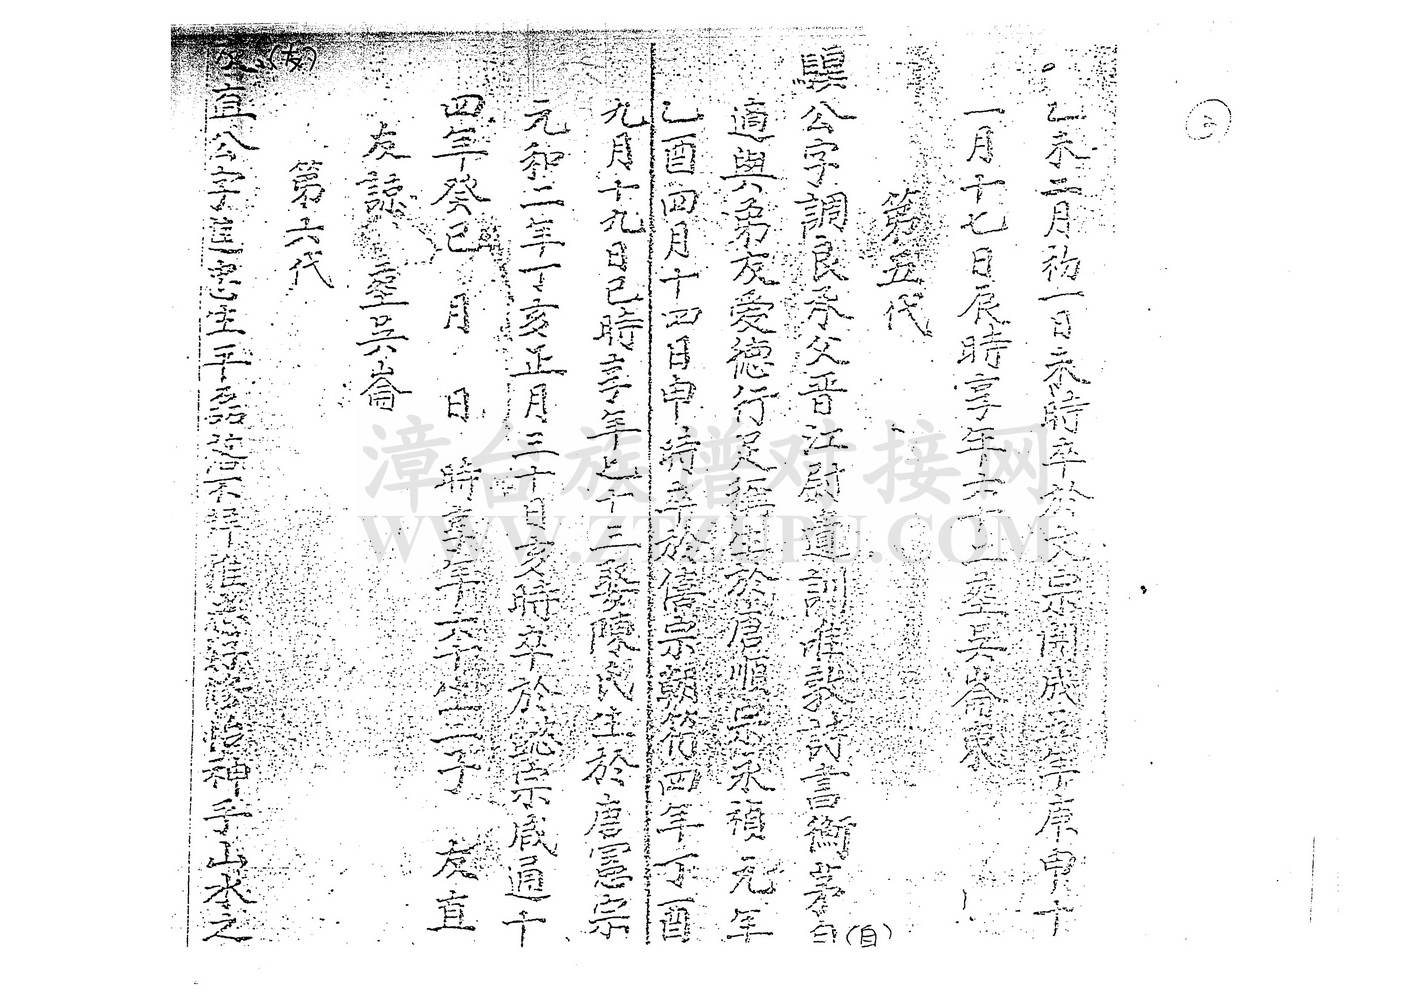 乙未二月初一日未時卒於文宗開成五年庚申十
一月十七日辰時享年六十二塟吳崙東
第五代
騏公字調良承父晋江尉遺訓惟敦詩書衡茅自(自)
適與弟友愛德行足稱生於唐順宗永禎元年
乙酉四月十四日申時卒於僖宗朝符四年丁酉
九月十九日巳時享年七十三娶陳氏生於唐憲宗
元和二年丁亥正月三十日亥時卒於懿宗咸通十
四年癸巳 月 日 時享年六十七生二子 友直
友諒 塟吳崙
第六代
友(友)直公字進忠生平磊落不 惟 神乎山水之
漳台族谱对接网
WWW.ZTZUPU.COM